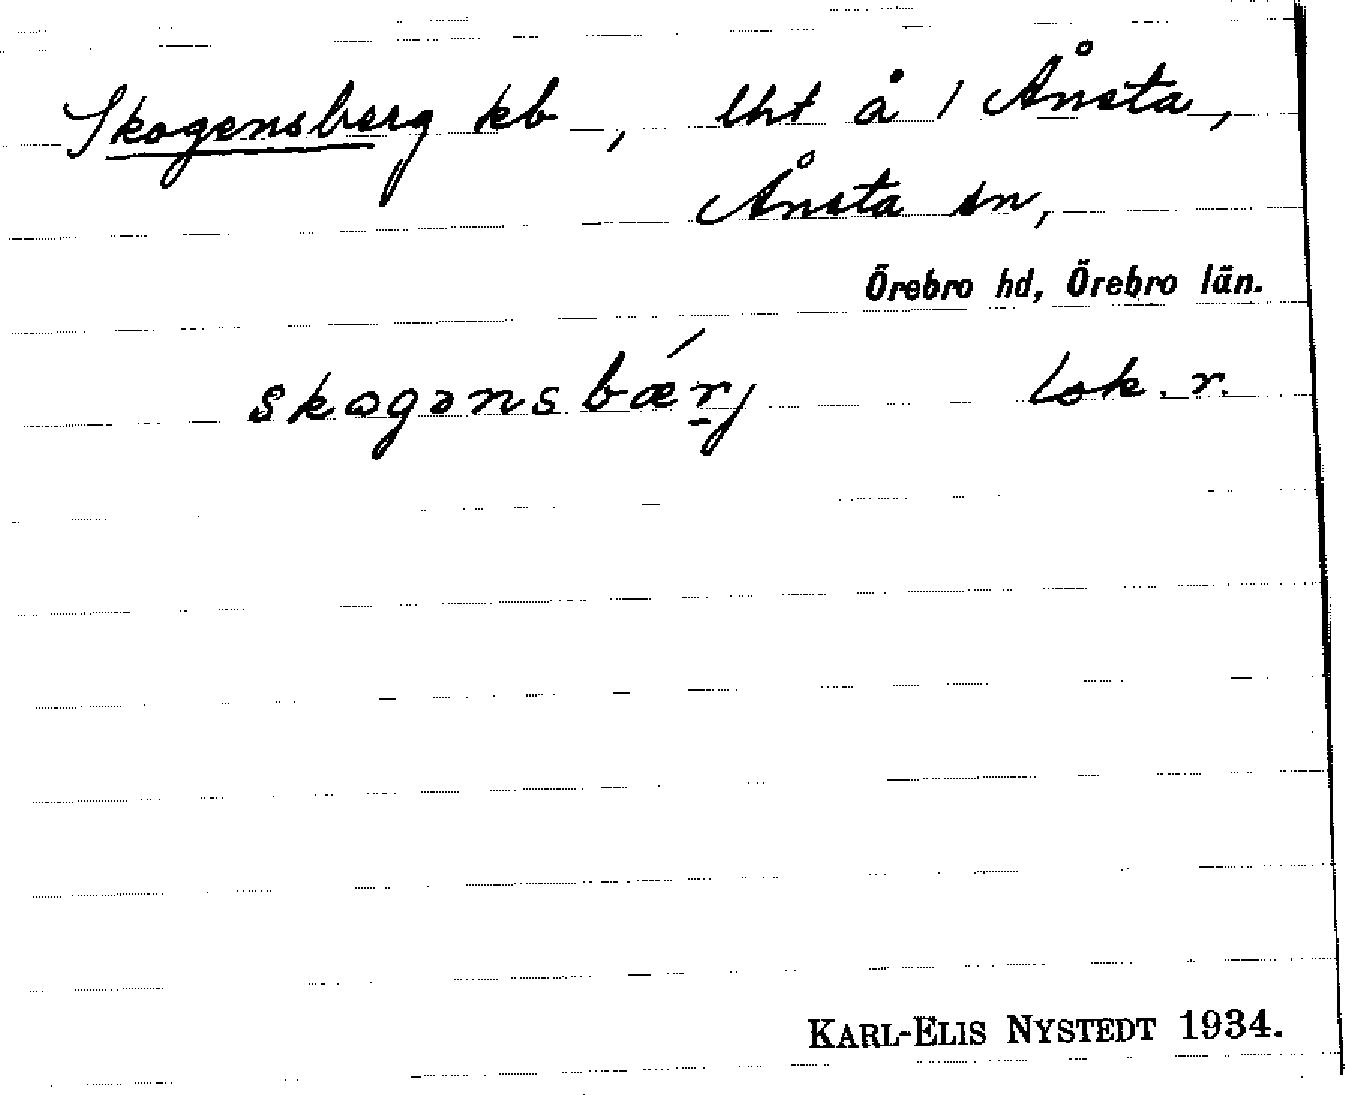 Skogensberg kb, lht å 1 Ånsta,
Ånsta sn,
Örebro hd, Örebro län.
skogənsbæ´r̠j lok. r.
KARL-ELIS NYSTEDT 1934.